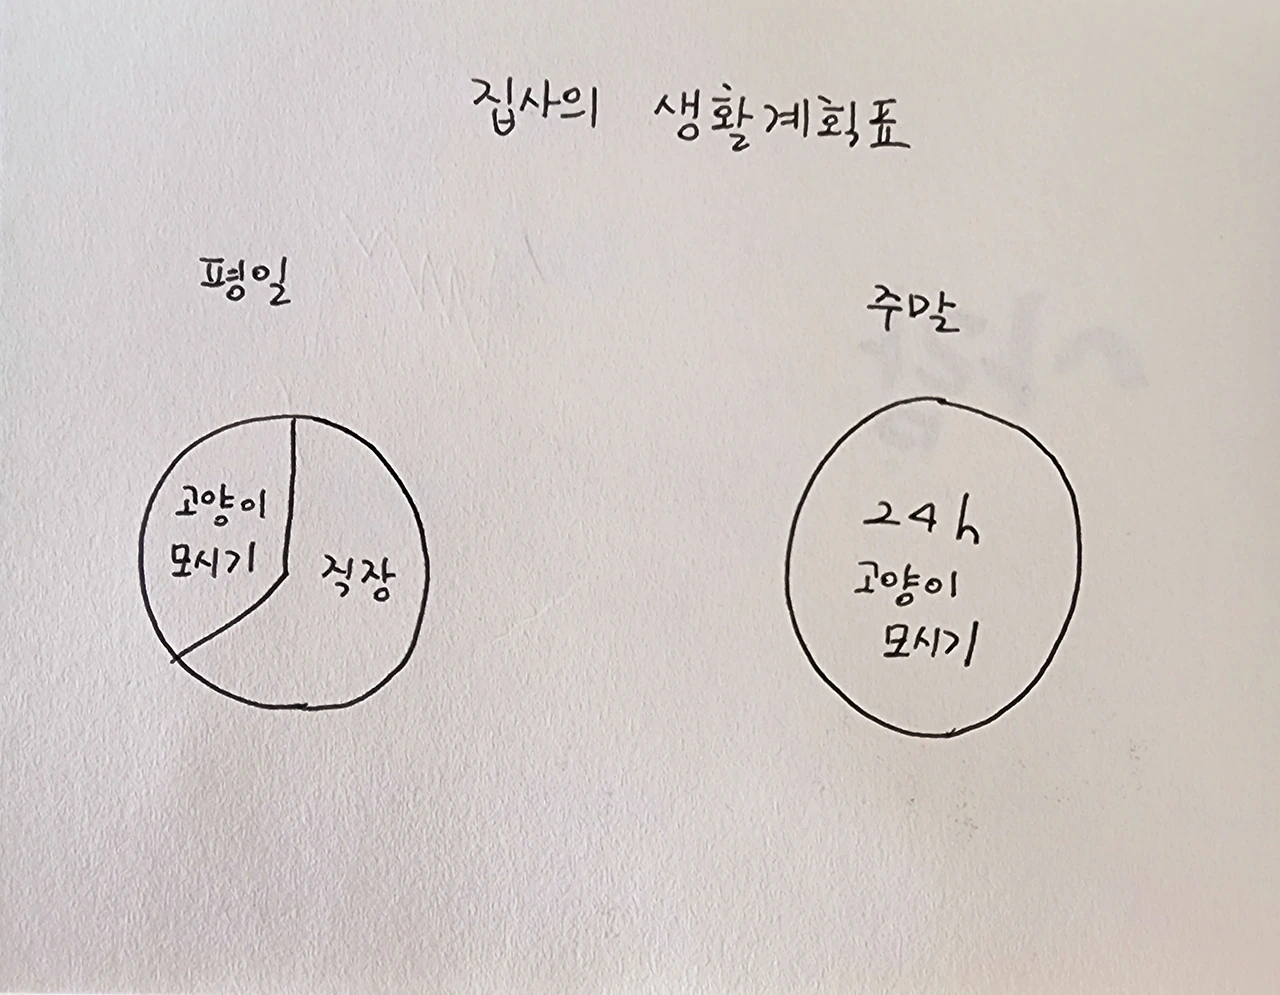 집사의 생활계획표
평일
주말
고양이
모시기
직장
24h
고양이
모시기